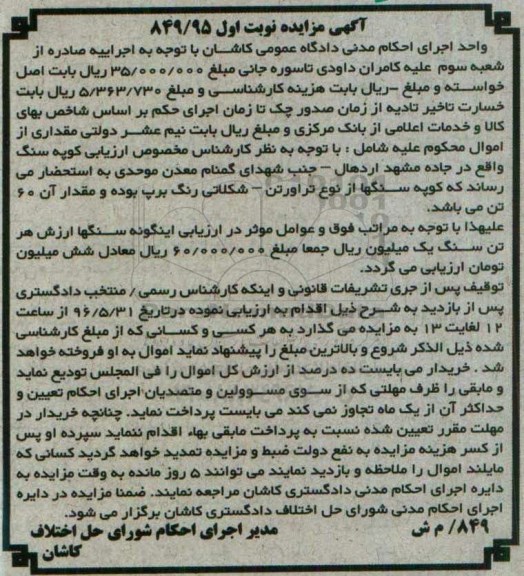 آگهی مزایده نوبت اول ۸۴۹/۹۵
واحد اجرای احکام مدنی دادگاه عمومی کاشان با توجه به اجراییه صادره از
شعبه سوم علیه کامران داودی تاسوره جانی مبلغ ۳۵/۰۰۰/۰۰۰ ریال بابت اصل
خواسته و مبلغ –ریال بابت هزینه کارشناسی و مبلغ ۵/۳۶۳/۷۳۰ ریال بابت
خسارت تاخیر تادیه از زمان صدور چک تا زمان اجرای حکم بر اساس شاخص بهای
کالا و خدمات اعلامی از بانک مرکزی و مبلغ ریال بابت نیم عشر دولتی مقداری از
اموال محکوم علیه شامل : با توجه به نظر کارشناس مخصوص ارزیابی کوپه سنگ
واقع در جاده مشهد اردهال – جنب شهدای گمنام معدن موحدی به استحضار می
رساند که کوپه سنگها از نوع تراورتن – شکلاتی رنگ برپ بوده و مقدار آن ۶۰
تن می باشد.
علیهذا با توجه به مراتب فوق و عوامل موثر در ارزیابی اینگونه سنگها ارزش هر
تن سنگ یک میلیون ریال جمعا مبلغ ۶۰/۰۰۰/۰۰۰ ریال معادل شش میلیون
تومان ارزیابی می گردد.
توقیف پس از جری تشریفات قانونی و اینکه کارشناس رسمی/ منتخب دادگستری
پس از بازدید به شرح ذیل اقدام به ارزیابی نموده درتاریخ ۹۶/۵/۳۱ از ساعت
۱۲ لغایت ۱۳ به مزایده می گذارد به هر کسی و کسانی که از مبلغ کارشناسی
شده ذیل الذکر شروع و بالاترین مبلغ را پیشنهاد نماید اموال به او فروخته خواهد
شد . خریدار می بایست ده درصد از ارزش کل اموال را فی المجلس تودیع نماید
و مابقی را ظرف مهلتی که از سوی مسوولین و متصدیان اجرای احکام تعیین و
حداکثر آن از یک ماه تجاوز نمی کند می بایست پرداخت نماید. چنانچه خریدار در
مهلت مقرر تعیین شده نسبت به پرداخت مابقی بهاء اقدام ننماید سپرده او پس
از کسر هزینه مزایده به نفع دولت ضبط و مزایده تمدید خواهد گردید کسانی که
مایلند اموال را ملاحظه و بازدید نمایند می توانند ۵ روز مانده به وقت مزایده به
دایره اجرای احکام مدنی دادگستری کاشان مراجعه نمایند. ضمنا مزایده در دایره
اجرای احکام مدنی شورای حل اختلاف دادگستری کاشان برگزار می شود.
۸۴۹/ م ش
مدیر اجرای احکام شورای حل اختلاف
کاشان